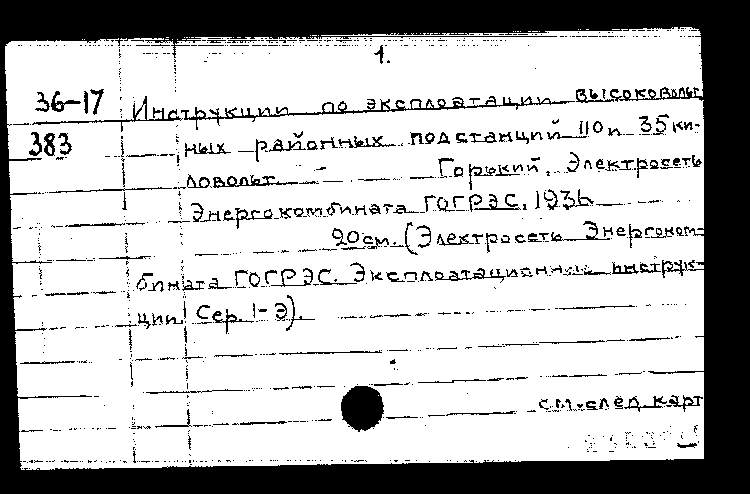 1.
36-17 Инструкции по эксплоатации высоковольт
383 ных районных подстанций 110 и 35 ки-
ловольт. Горький, Электросеть
Энергокомбината ГОГРЭС, 1936
20см. (Электросеть Энергоком-
бината ГОГРЭС. Эксплоатационные инструк-
ции. Сер. 1-Э).
см. след. карт